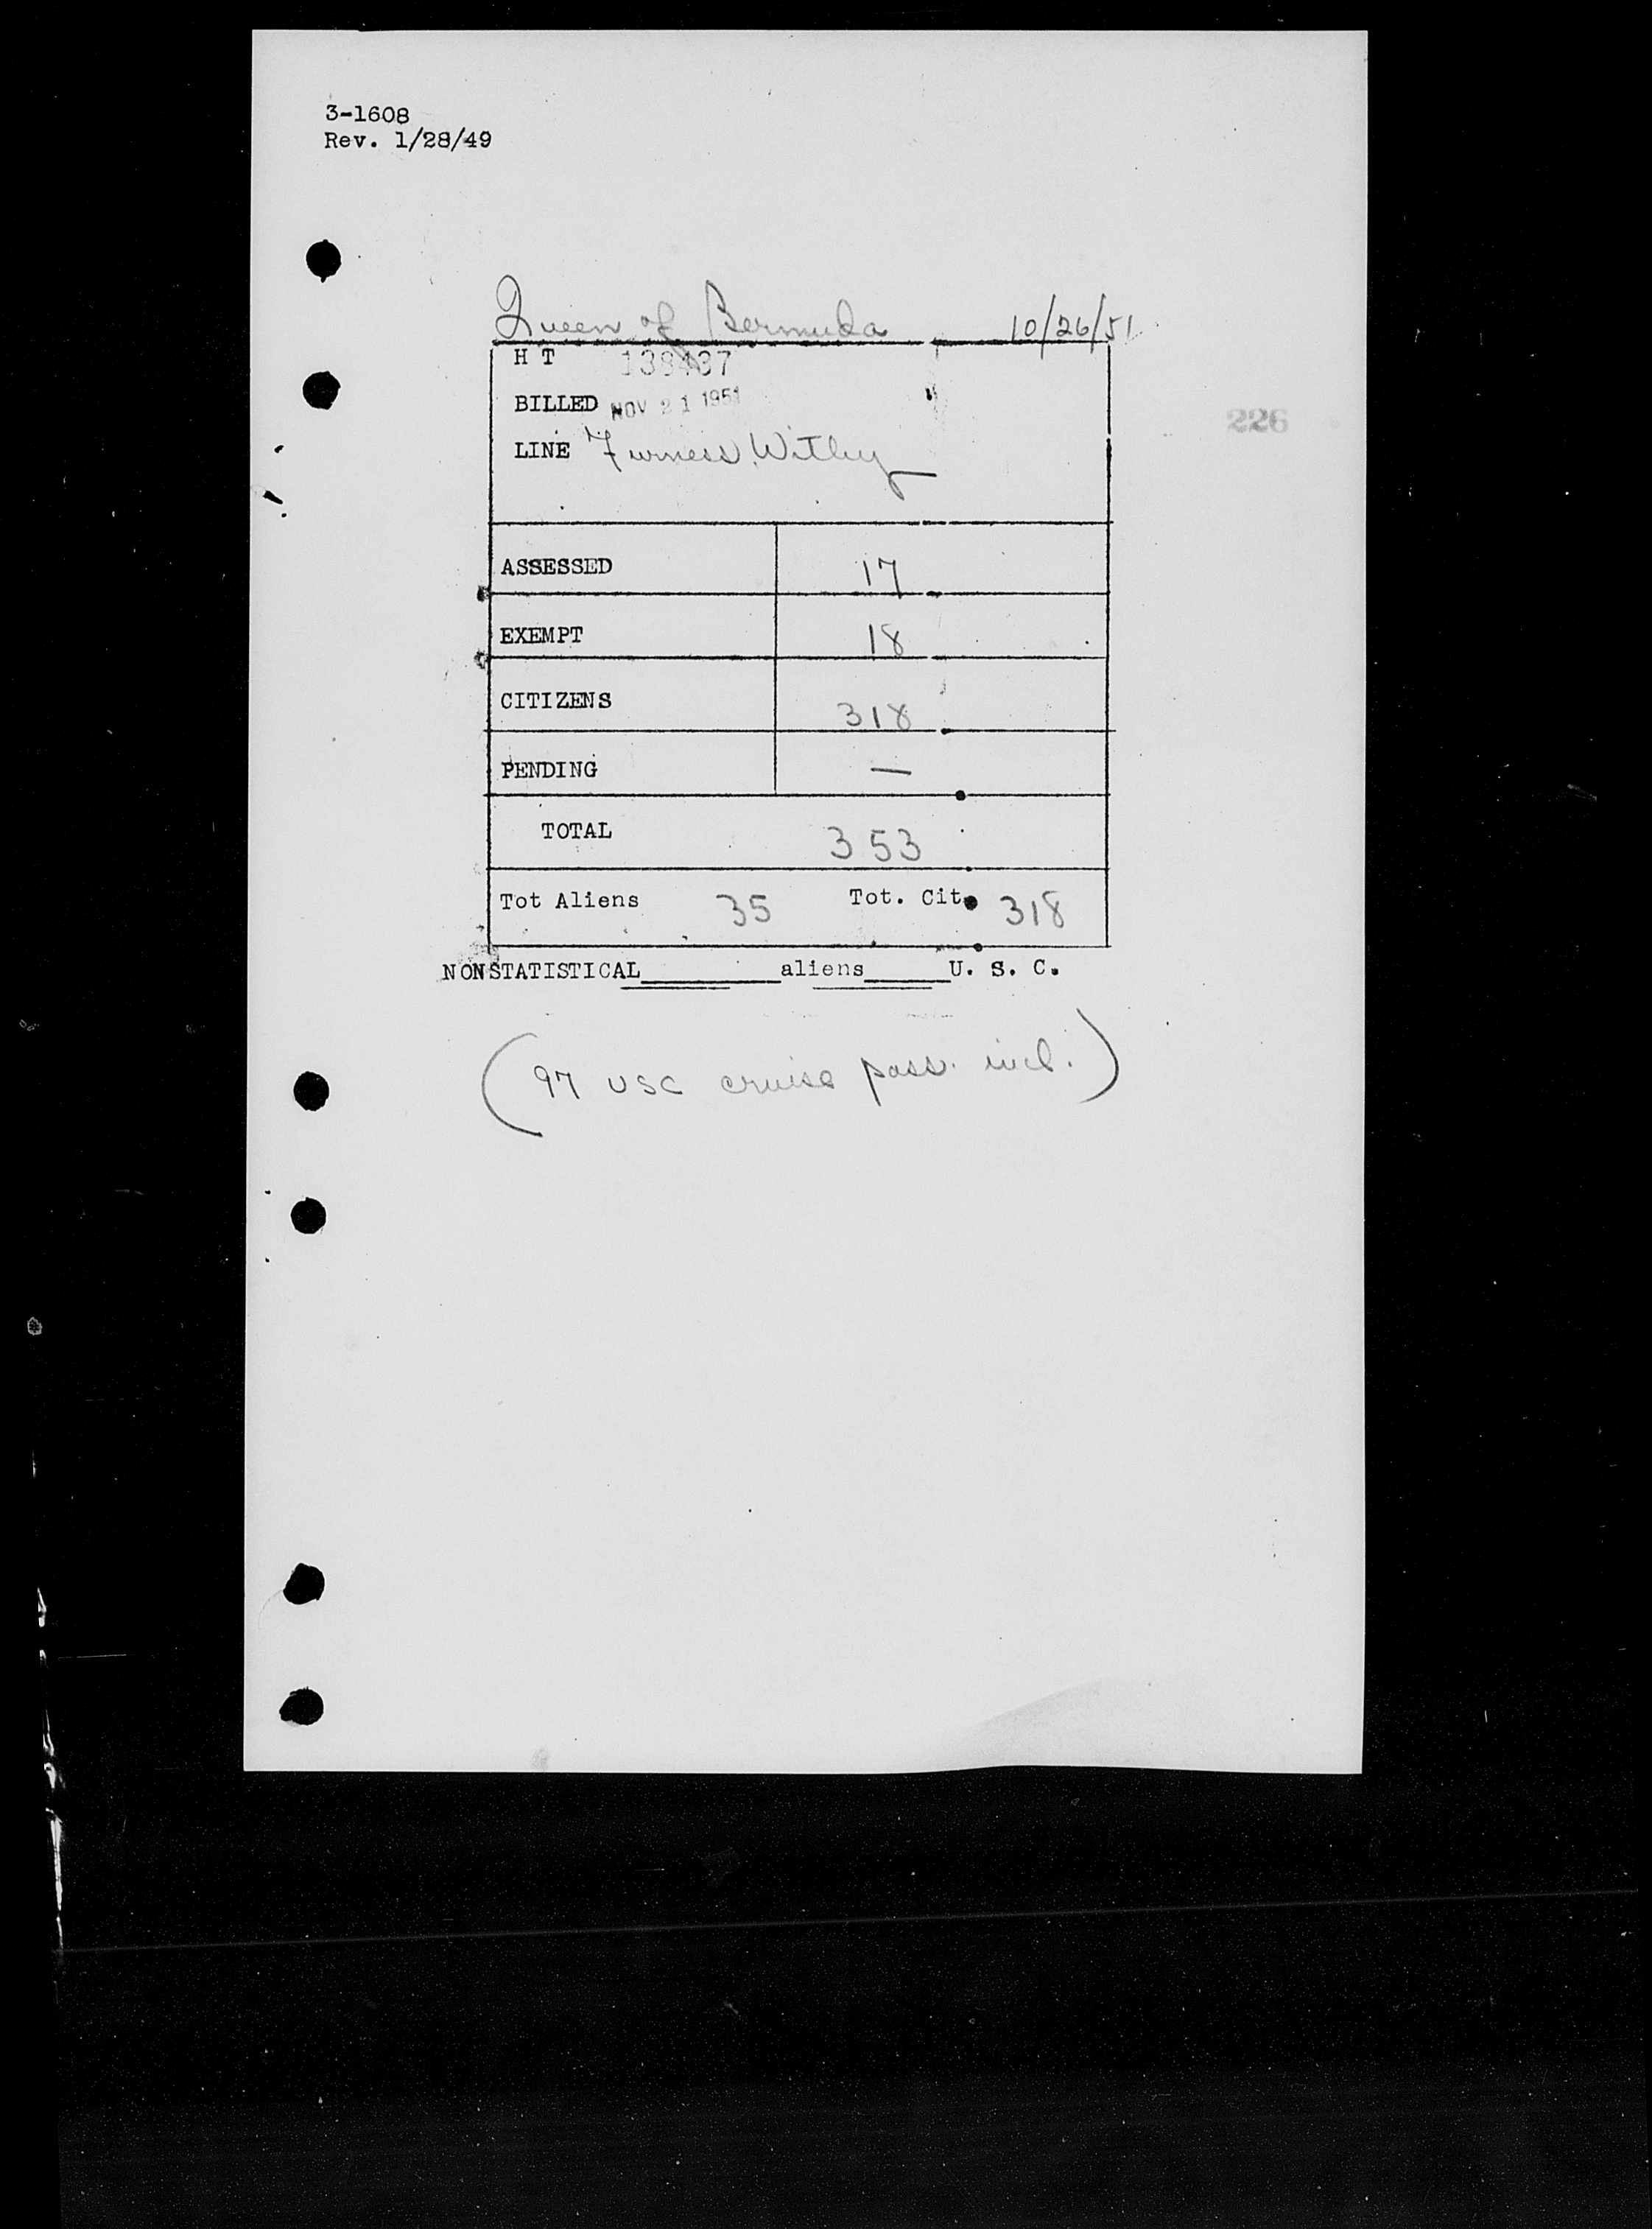 3-1608
Rev. 1/28/49
Queen of Bermuda 10/26/51
H T
BILLED NOV 21 1951
LINE Furness, Withy
226
ASSESSED 17
EXEMPT 18
CITIZENS 318
PENDING —
TOTAL 353
Tot Aliens 35 Tot. Cit. 318
NONSTATISTICAL__________aliens______U. S. C.
(97 USC cruise pass. incl.)